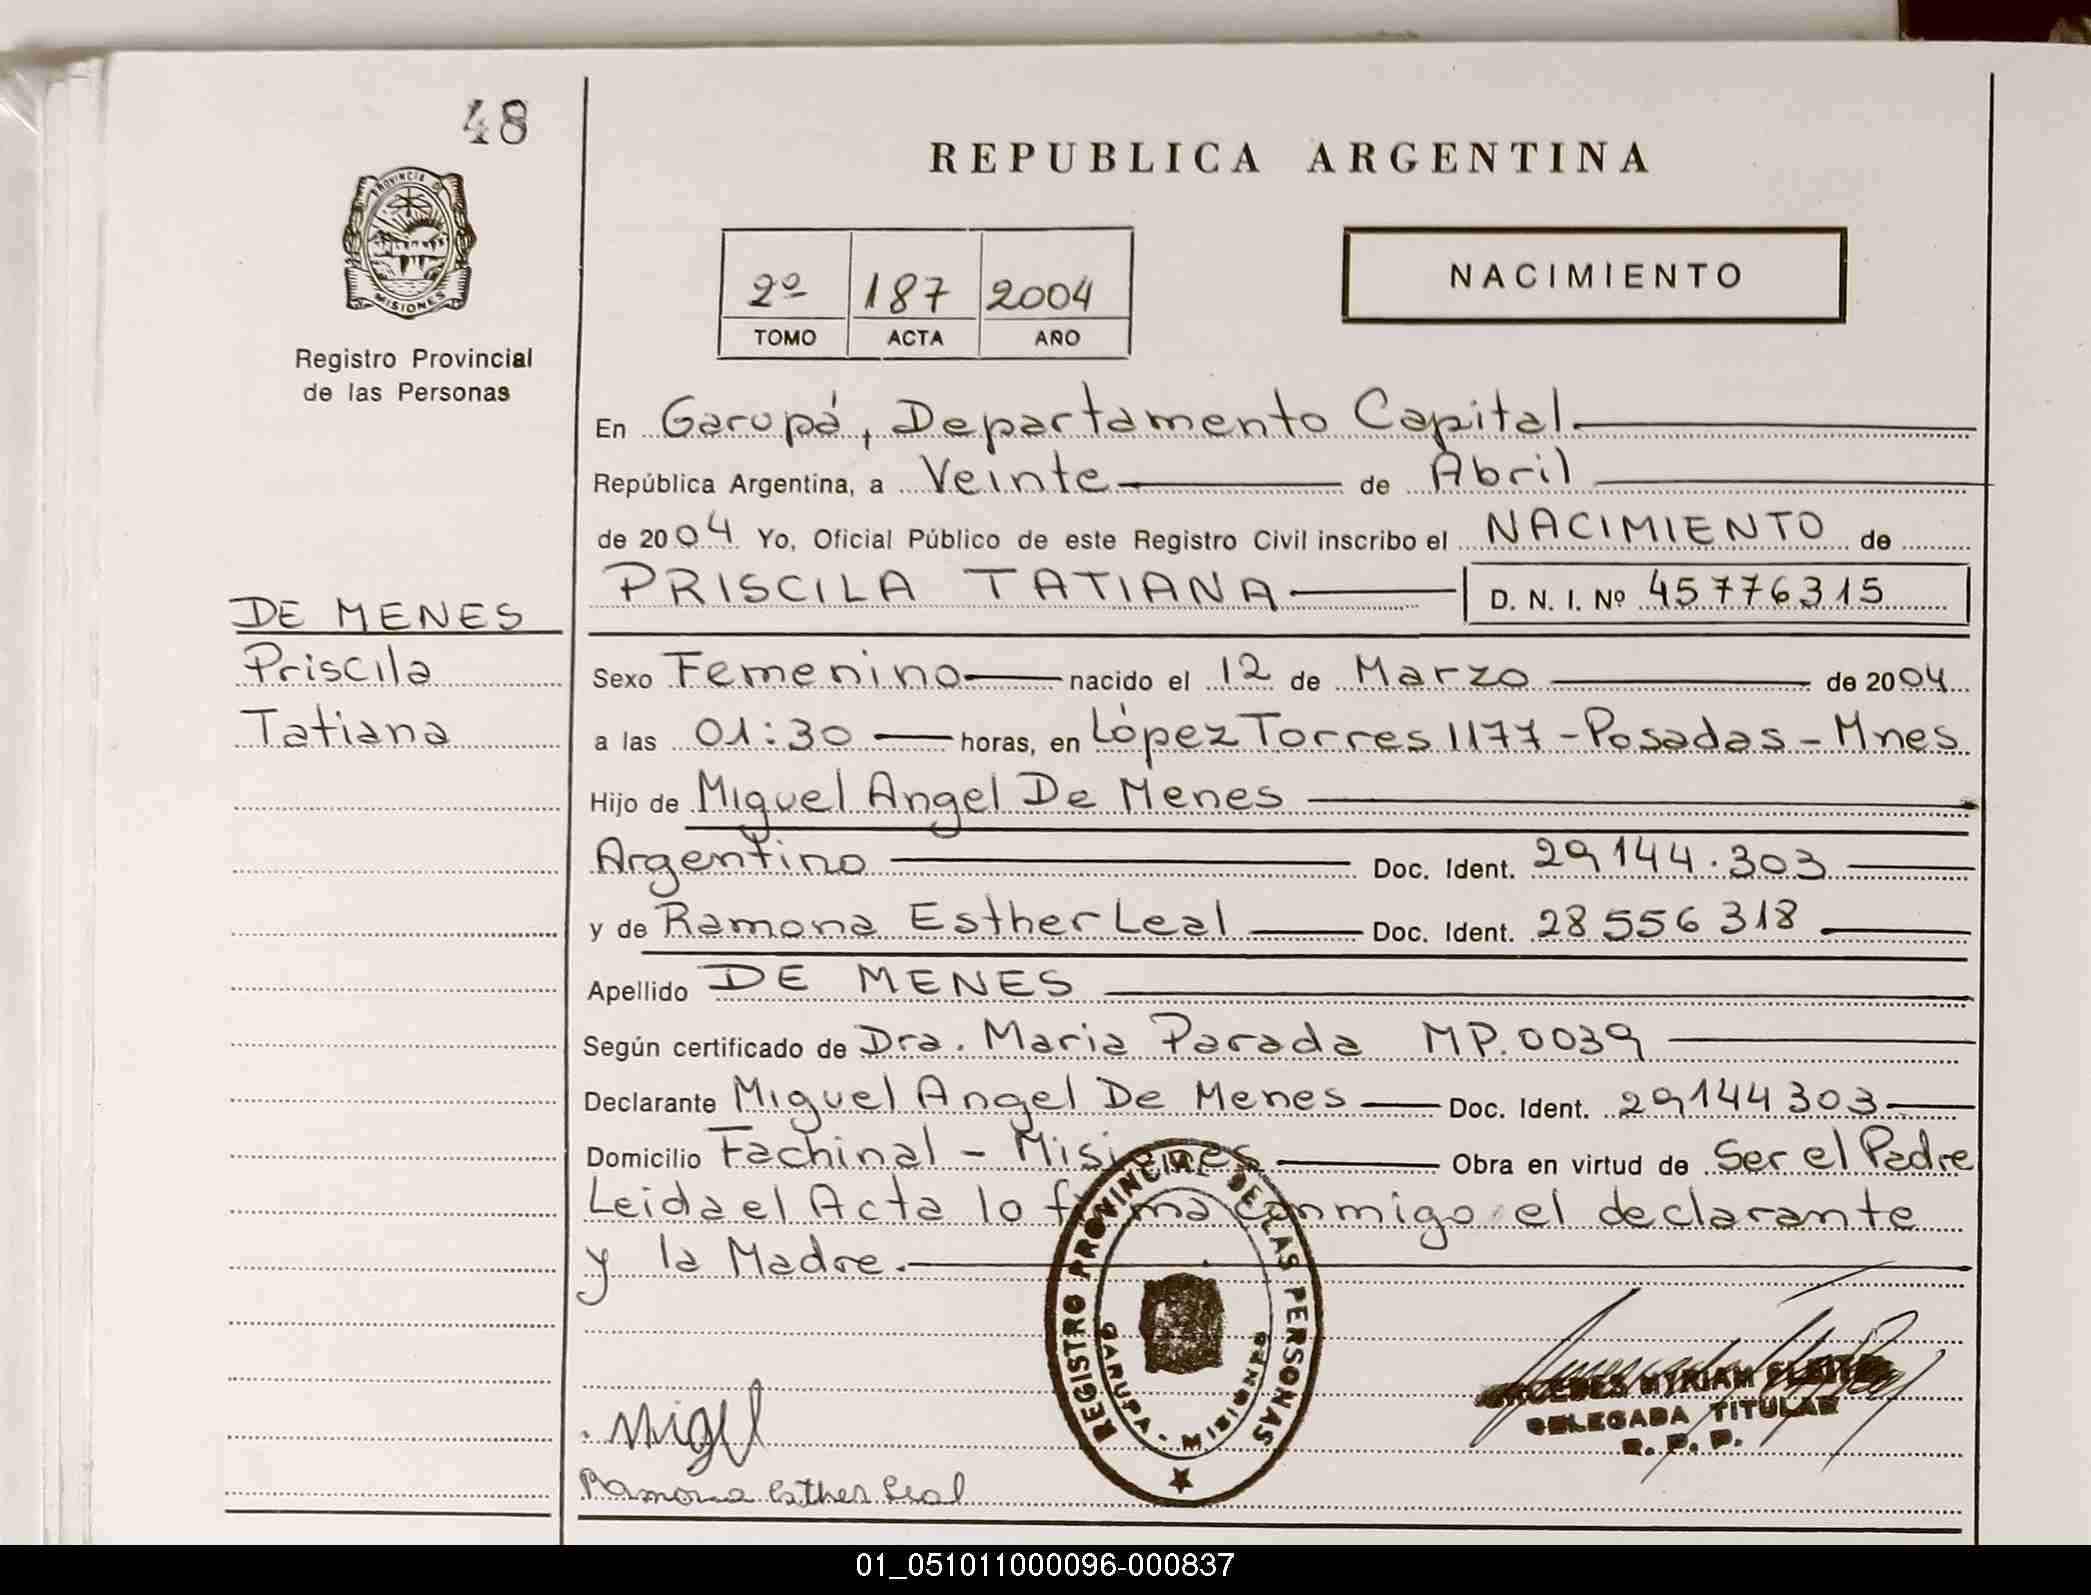 48
PROVINCIA D
MISIONES
Registro Provincial
de las Personas
REPUBLICA ARGENTINA
2º 187 2004
TOMO ACTA AÑO
NACIMIENTO
En Garupá, Departamento Capital.
República Argentina, a Veinte de Abril
de 2004 Yo, Oficial Público de este Registro Civil inscribo el NACIMIENTO de
PRISCILA TATIANA D. N. I. Nº 45776315
DE MENES
Priscila
Tatiana
Sexo Femenino nacido el 12 de Marzo de 2004
a las 01:30 horas, en López Torres 1177 - Posadas - Mnes
Hijo de Miguel Angel De Menes
Argentino Doc. Ident. 29144.303
y de Ramona Esther Leal Doc. Ident. 28556318
Apellido DE MENES
Según certificado de Dra. Maria Parada MP.0039
Declarante Miguel Angel De Menes Doc. Ident. 29144303
Domicilio Fachinal - Misiones Obra en virtud de Ser el Padre
Leida el Acta lo firma conmigo el declarante
y la Madre.
REGISTRO PROVINCIAL DE LAS PERSONAS
GARUPA - MISIONES
Migel
Ramona Esther Leal
MYRIAM
DELEGADA TITULAR
R. P. P.
01_051011000096-000837